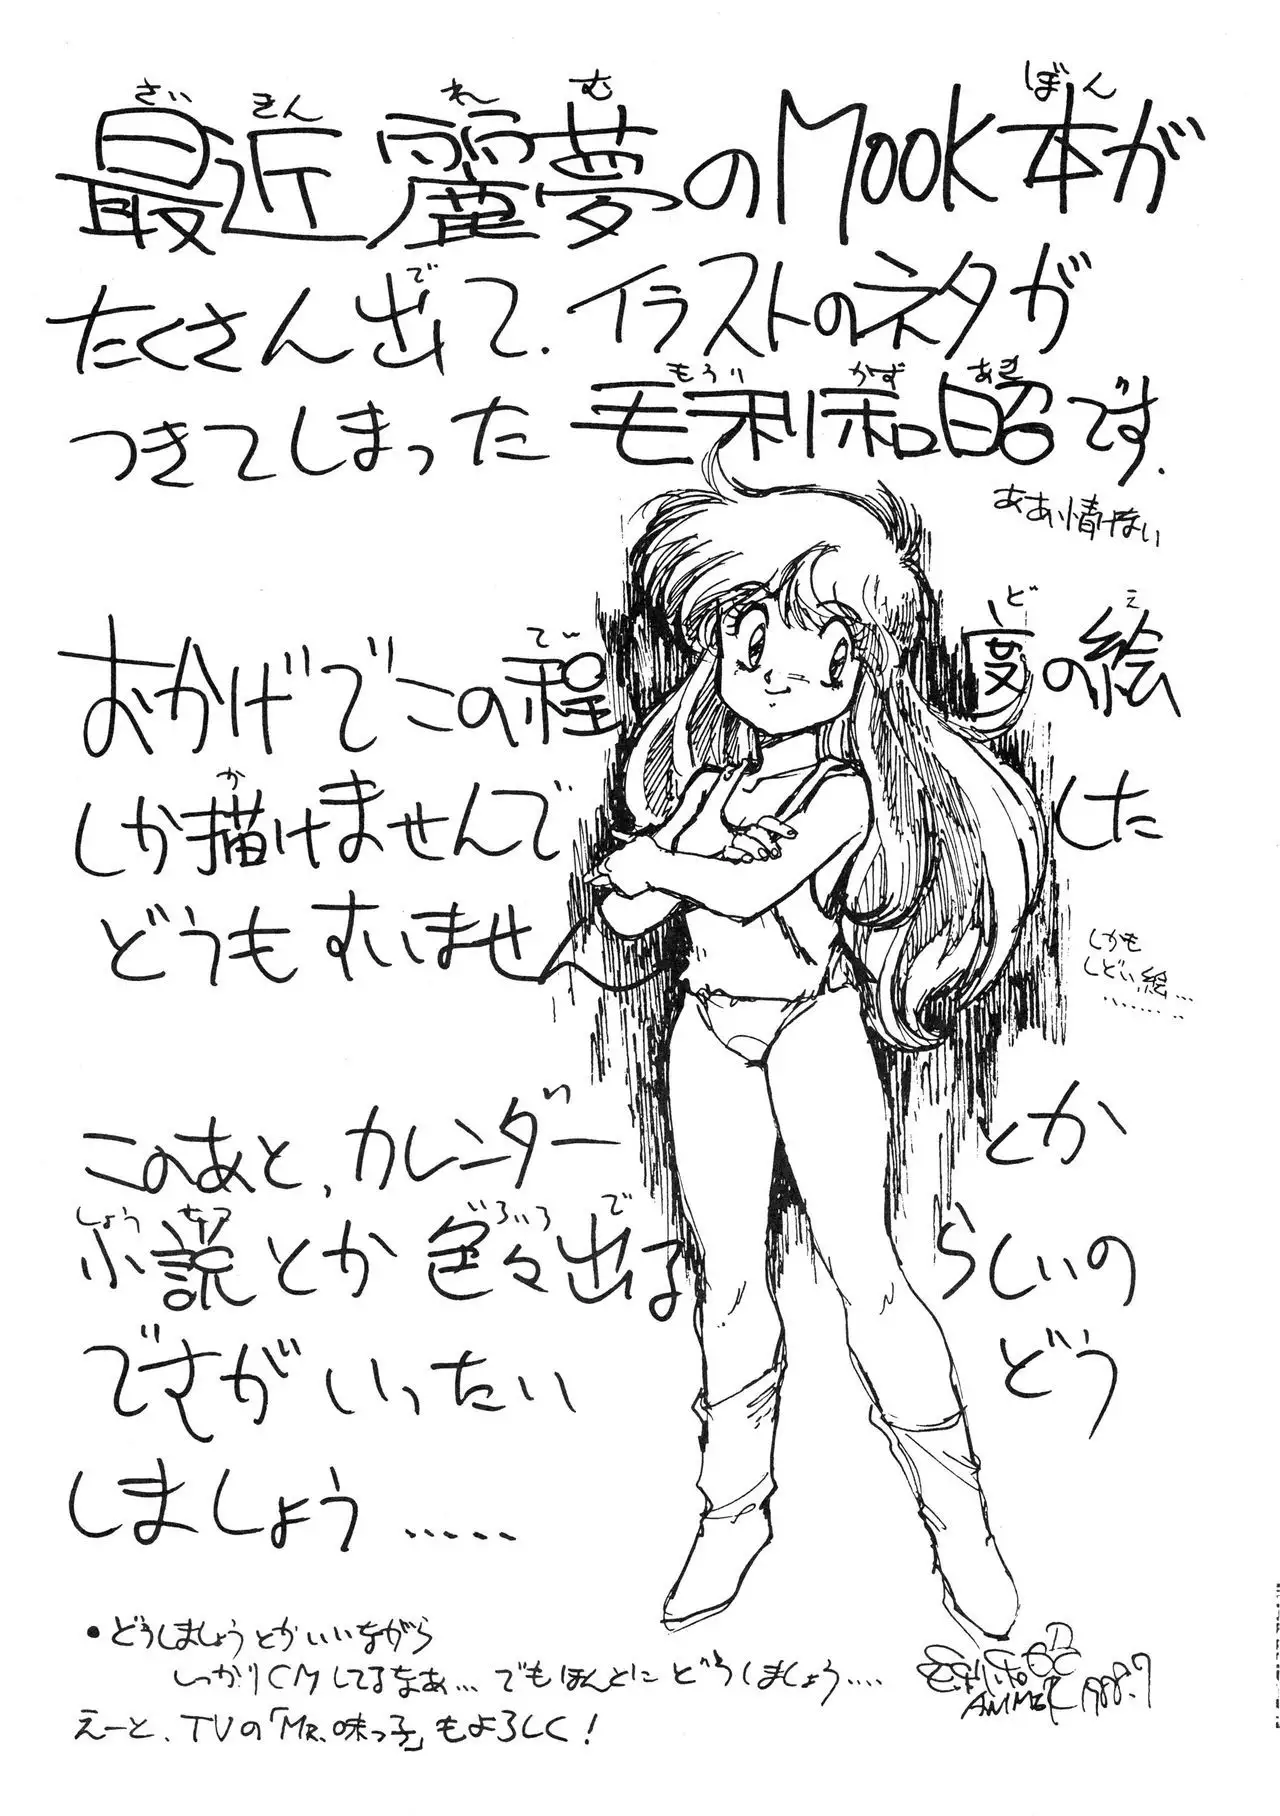 最近麗夢のMOOK本が
たくさん出て、イラストのネタが
つきてしまった毛利和昭です.
ああ情けない
おかげでこの程度の絵
しか描けませんでした
どうもすいませ
しかも
しどい絵…
このあと、カレンダーとか
小説とか色々出るらしいの
ですがいったいどう
しましょう……
・どうしましょうとかいいながら
しっかりCMしてるなあ… でもほんとにどうしましょう….
えーと、TVの「MR.味っ子」もよろしく!
1988.7